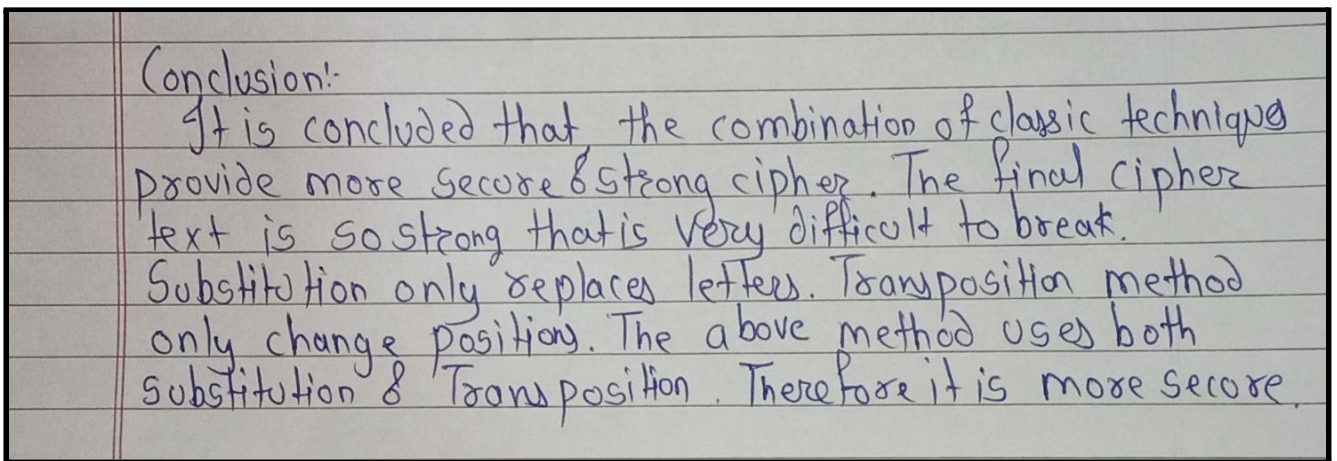 Conclusion:-
It is concluded that, the combination of classic techniques
provide more secure & strong cipher. The final cipher
text is so strong that is very difficult to break.
Substitution only replaces letters. Transposition method
only change positions. The above method uses both
substitution & Transposition. Therefore it is more secure.